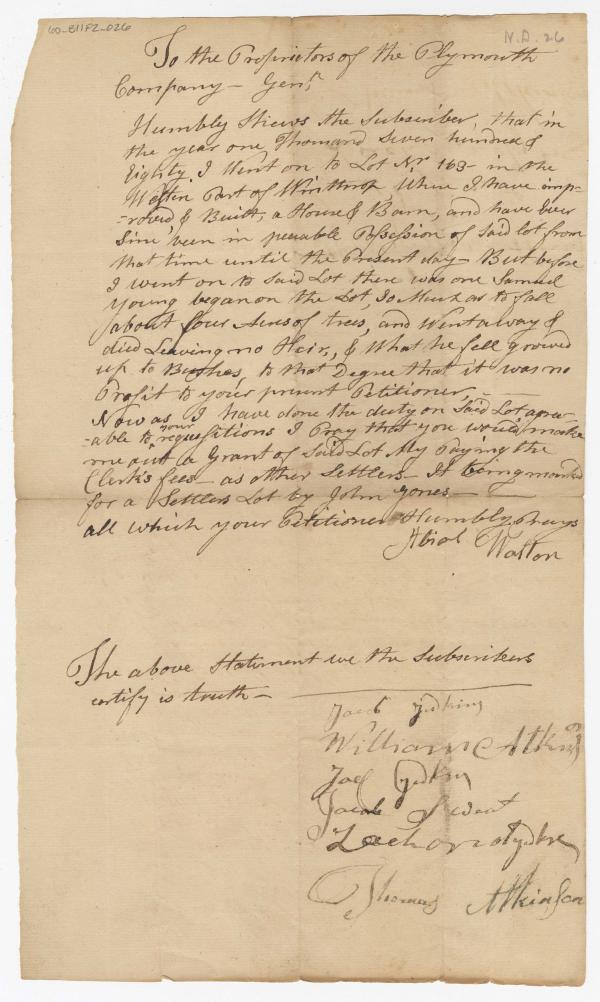 60-B11F2-026
N.D. 26
To the Proprietors of the Plymouth
Company – Genr.
Humbly Shews the Subscriber, that in
the year one Thousand Seven hundred &
Eighty I Went on to Lot Nr. 163 – in the
Westin Part of Winthrop Where I have imp-
-roved & Built, a House & Barn, and have Ever
Sinc been in peacable Possession of Said lot from
that time until the Present day – But before
I went on to Said Lot there was one Samuel
Young began on the Lot, So Much as to fall
about four Acres of trees, and Went away &
died Leaving no Heir, & What he fell growed
up to Bushes, to that Degree that it was no
Profit to your present Petitioner –
Now as I have done the duty on Said Lot agree-
-able to your requesitions I Pray that you would make
me out a Grant of Said Lot My Paying the
Clerk's fees – as other Settlers – It being marked
for a Settlers Lot by John Jones –
all which your Petitioner Humbly prays
Abial Walton
The above Statement we the Subscribers
certify is truth –
Jacob Judkins
William Atkins
Joel Judkin
Jacob Sweat
Thomas Atkinson